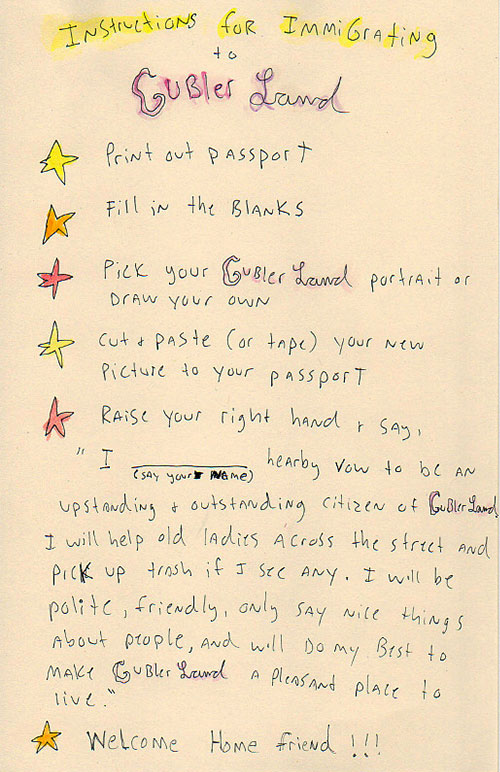 Instructions for Immigrating
to
Gubler Land
Print out passport
Fill in the Blanks
Pick your Gubler Land portrait or
Draw your own
Cut & paste (or tape) your new
picture to your passport
Raise your right hand & say,
"I ________ hearby vow to be an
(say your name)
upstanding & outstanding citizen of Gubler Land
I will help old ladies across the street and
pick up trash if I see any. I will be
polite, friendly, only say nice things
about people, and will do my Best to
make Gubler Land a pleasant place to
live."
Welcome Home friend!!!